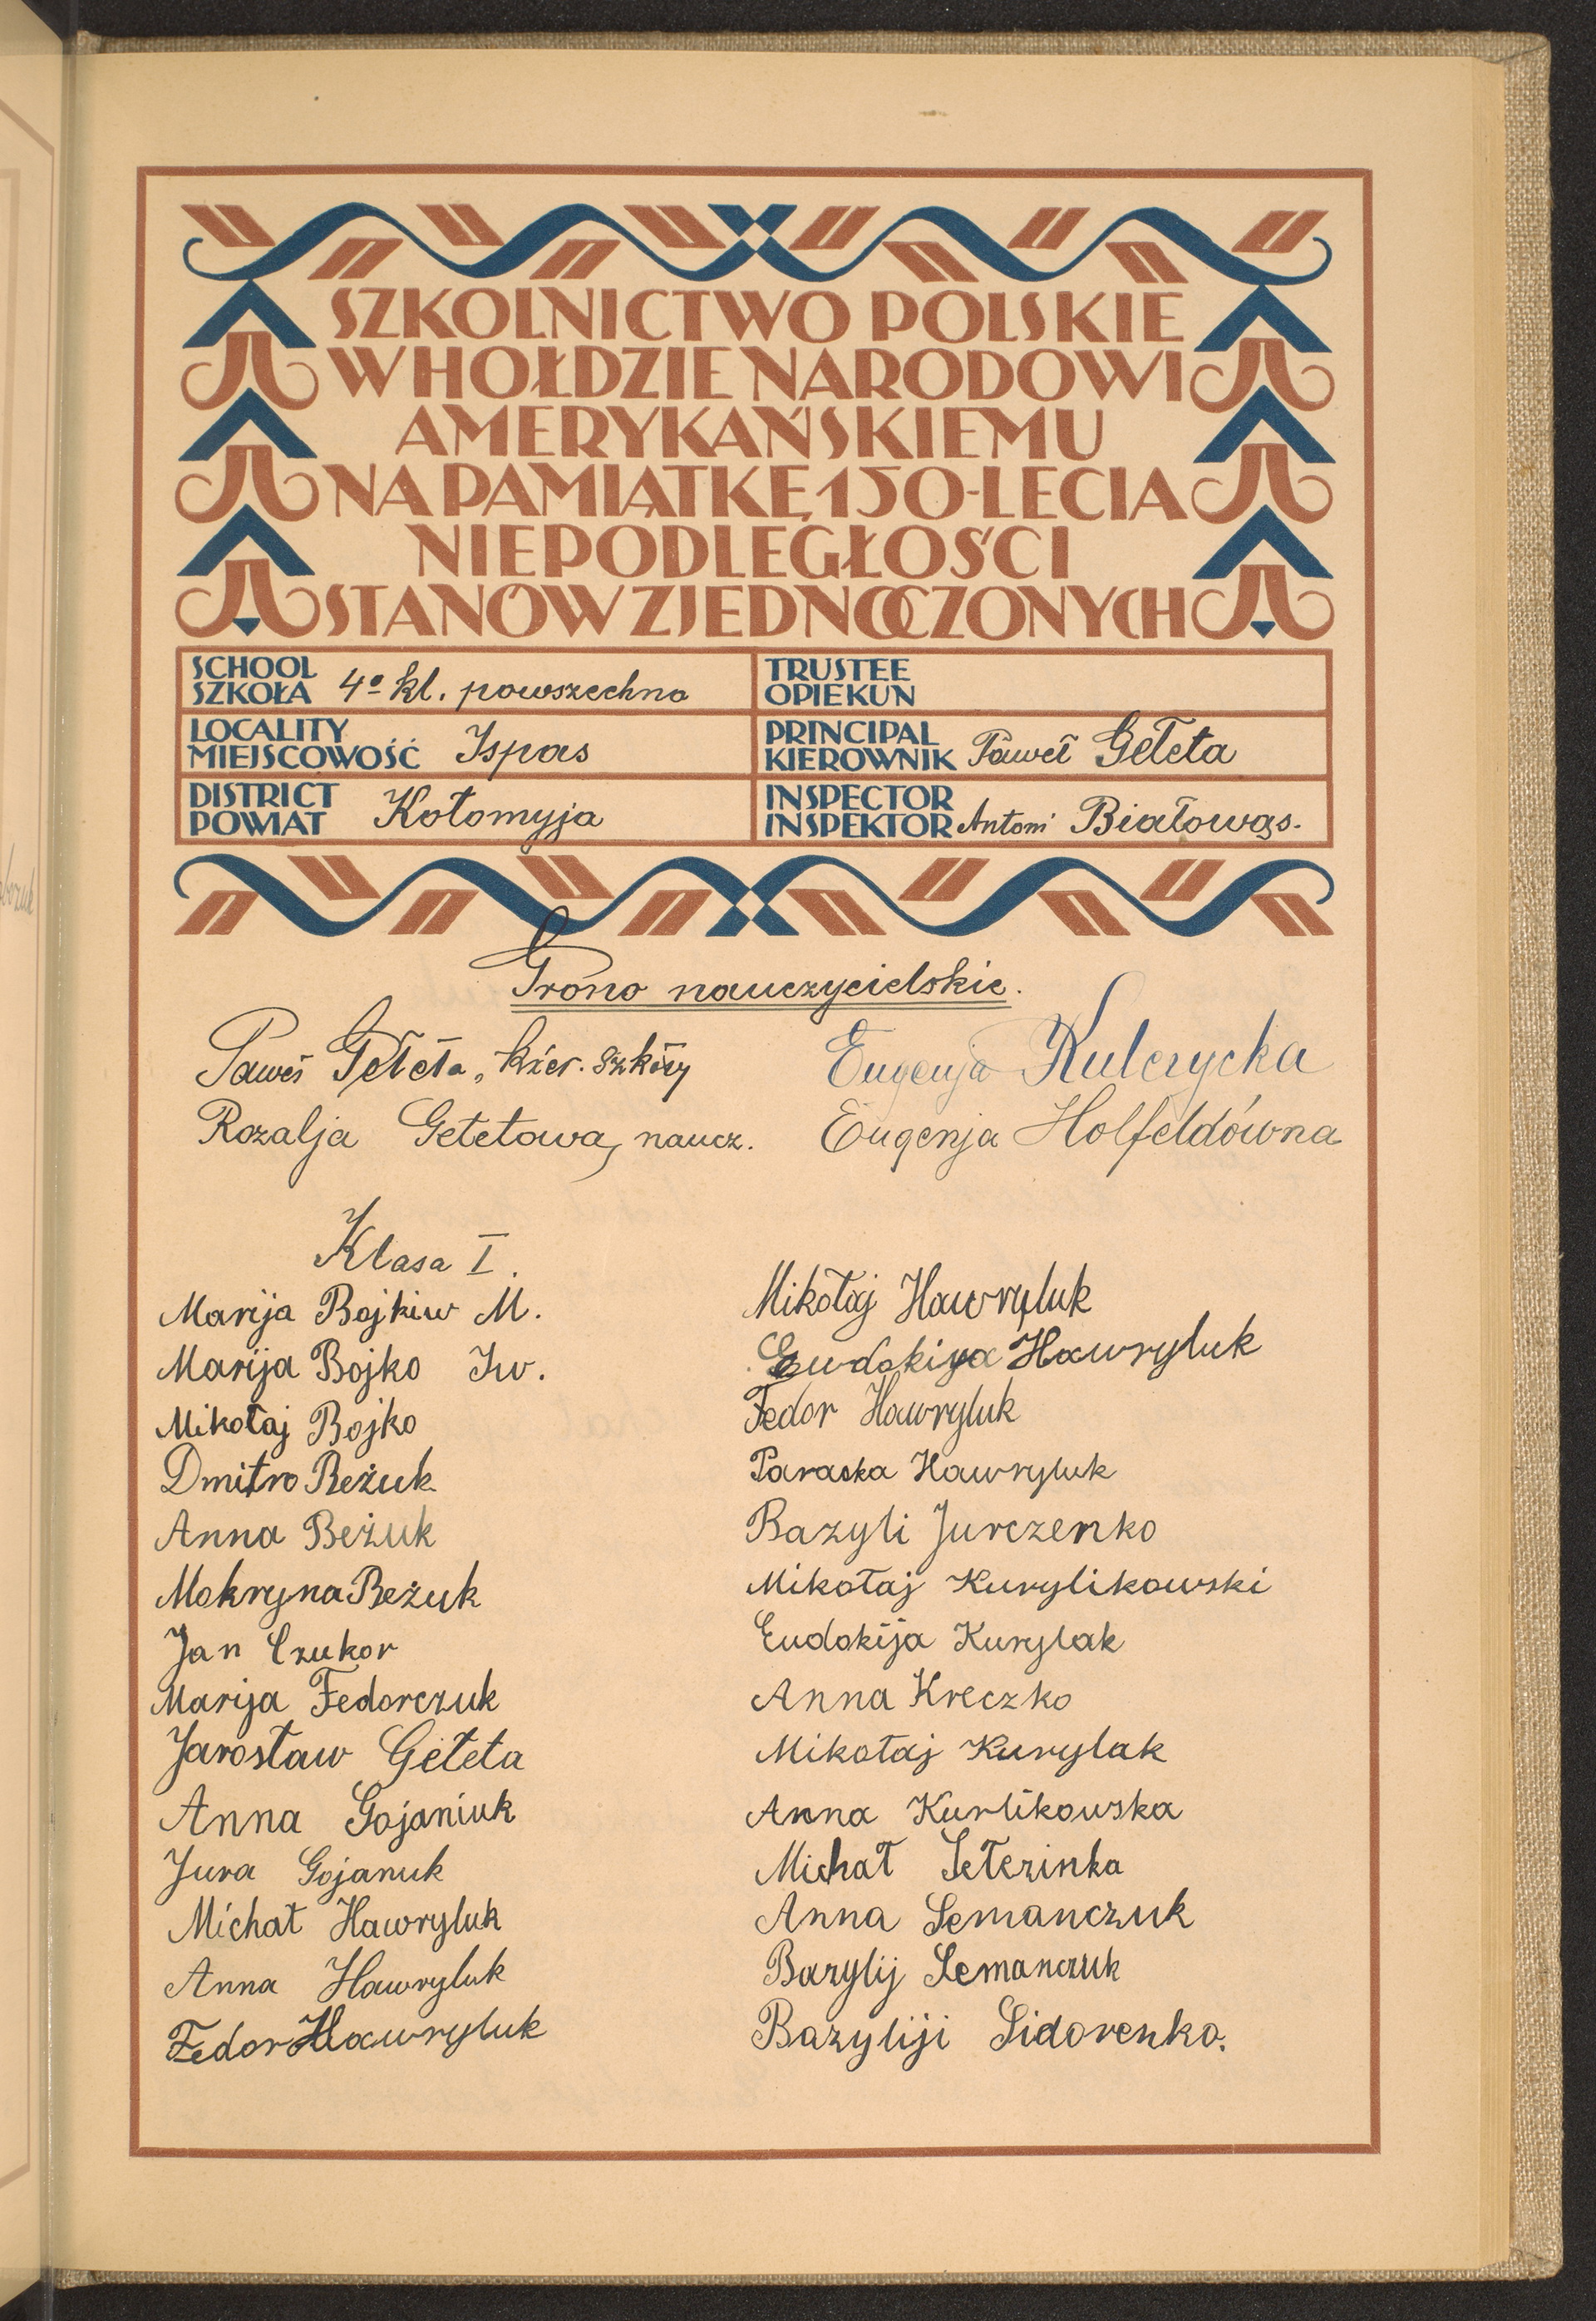 SZKOLNICTWO POLSKIE
W HOŁDZIE NARODOWI
AMERYKAŃSKIEMU
NA PAMIĄTKĘ 150-LECIA
NIEPODLEGŁOŚCI
STANÓW ZJEDNOCZONYCH
SCHOOL
SZKOŁA 4º kl. powszechna
TRUSTEE
OPIEKUN
LOCALITY
MIEJSCOWOŚĆ Ispas
PRINCIPAL
KIEROWNIK Paweł Gełeta
DISTRICT
POWIAT Kołomyja
INSPECTOR
INSPEKTOR Antoni Białowąs.
Grono nauczycielskie.
Paweł Gełeta, kier. szkoły
Rozalja Gełetowa, naucz.
Eugenja Kulczycka
Eugenja Holfeldówna
Klasa I.
Marija Bojkiw M.
Marija Bojko Iw.
Mikołaj Bojko
Dmitro Beżuk
Anna Beżuk
Mokryna Beżuk
Jan Czukor
Marija Fedorczuk
Jarosław Gełeta
Anna Gojaniuk
Jura Gojanuk
Michał Hawryluk
Anna Hawryluk
Fedor Hawryluk
Mikołaj Hawryluk
Ewdokiya Hawryluk
Fedor Hawryluk
Paraska Hawryluk
Bazyli Jurczenko
Mikołaj Kurylikowski
Eudokija Kurylak
Anna Kreczko
Mikołaj Kurylak
Anna Kurlikowska
Michał
Anna Semanczuk
Bazylij Semanczuk
Bazyliji Sidorenko.